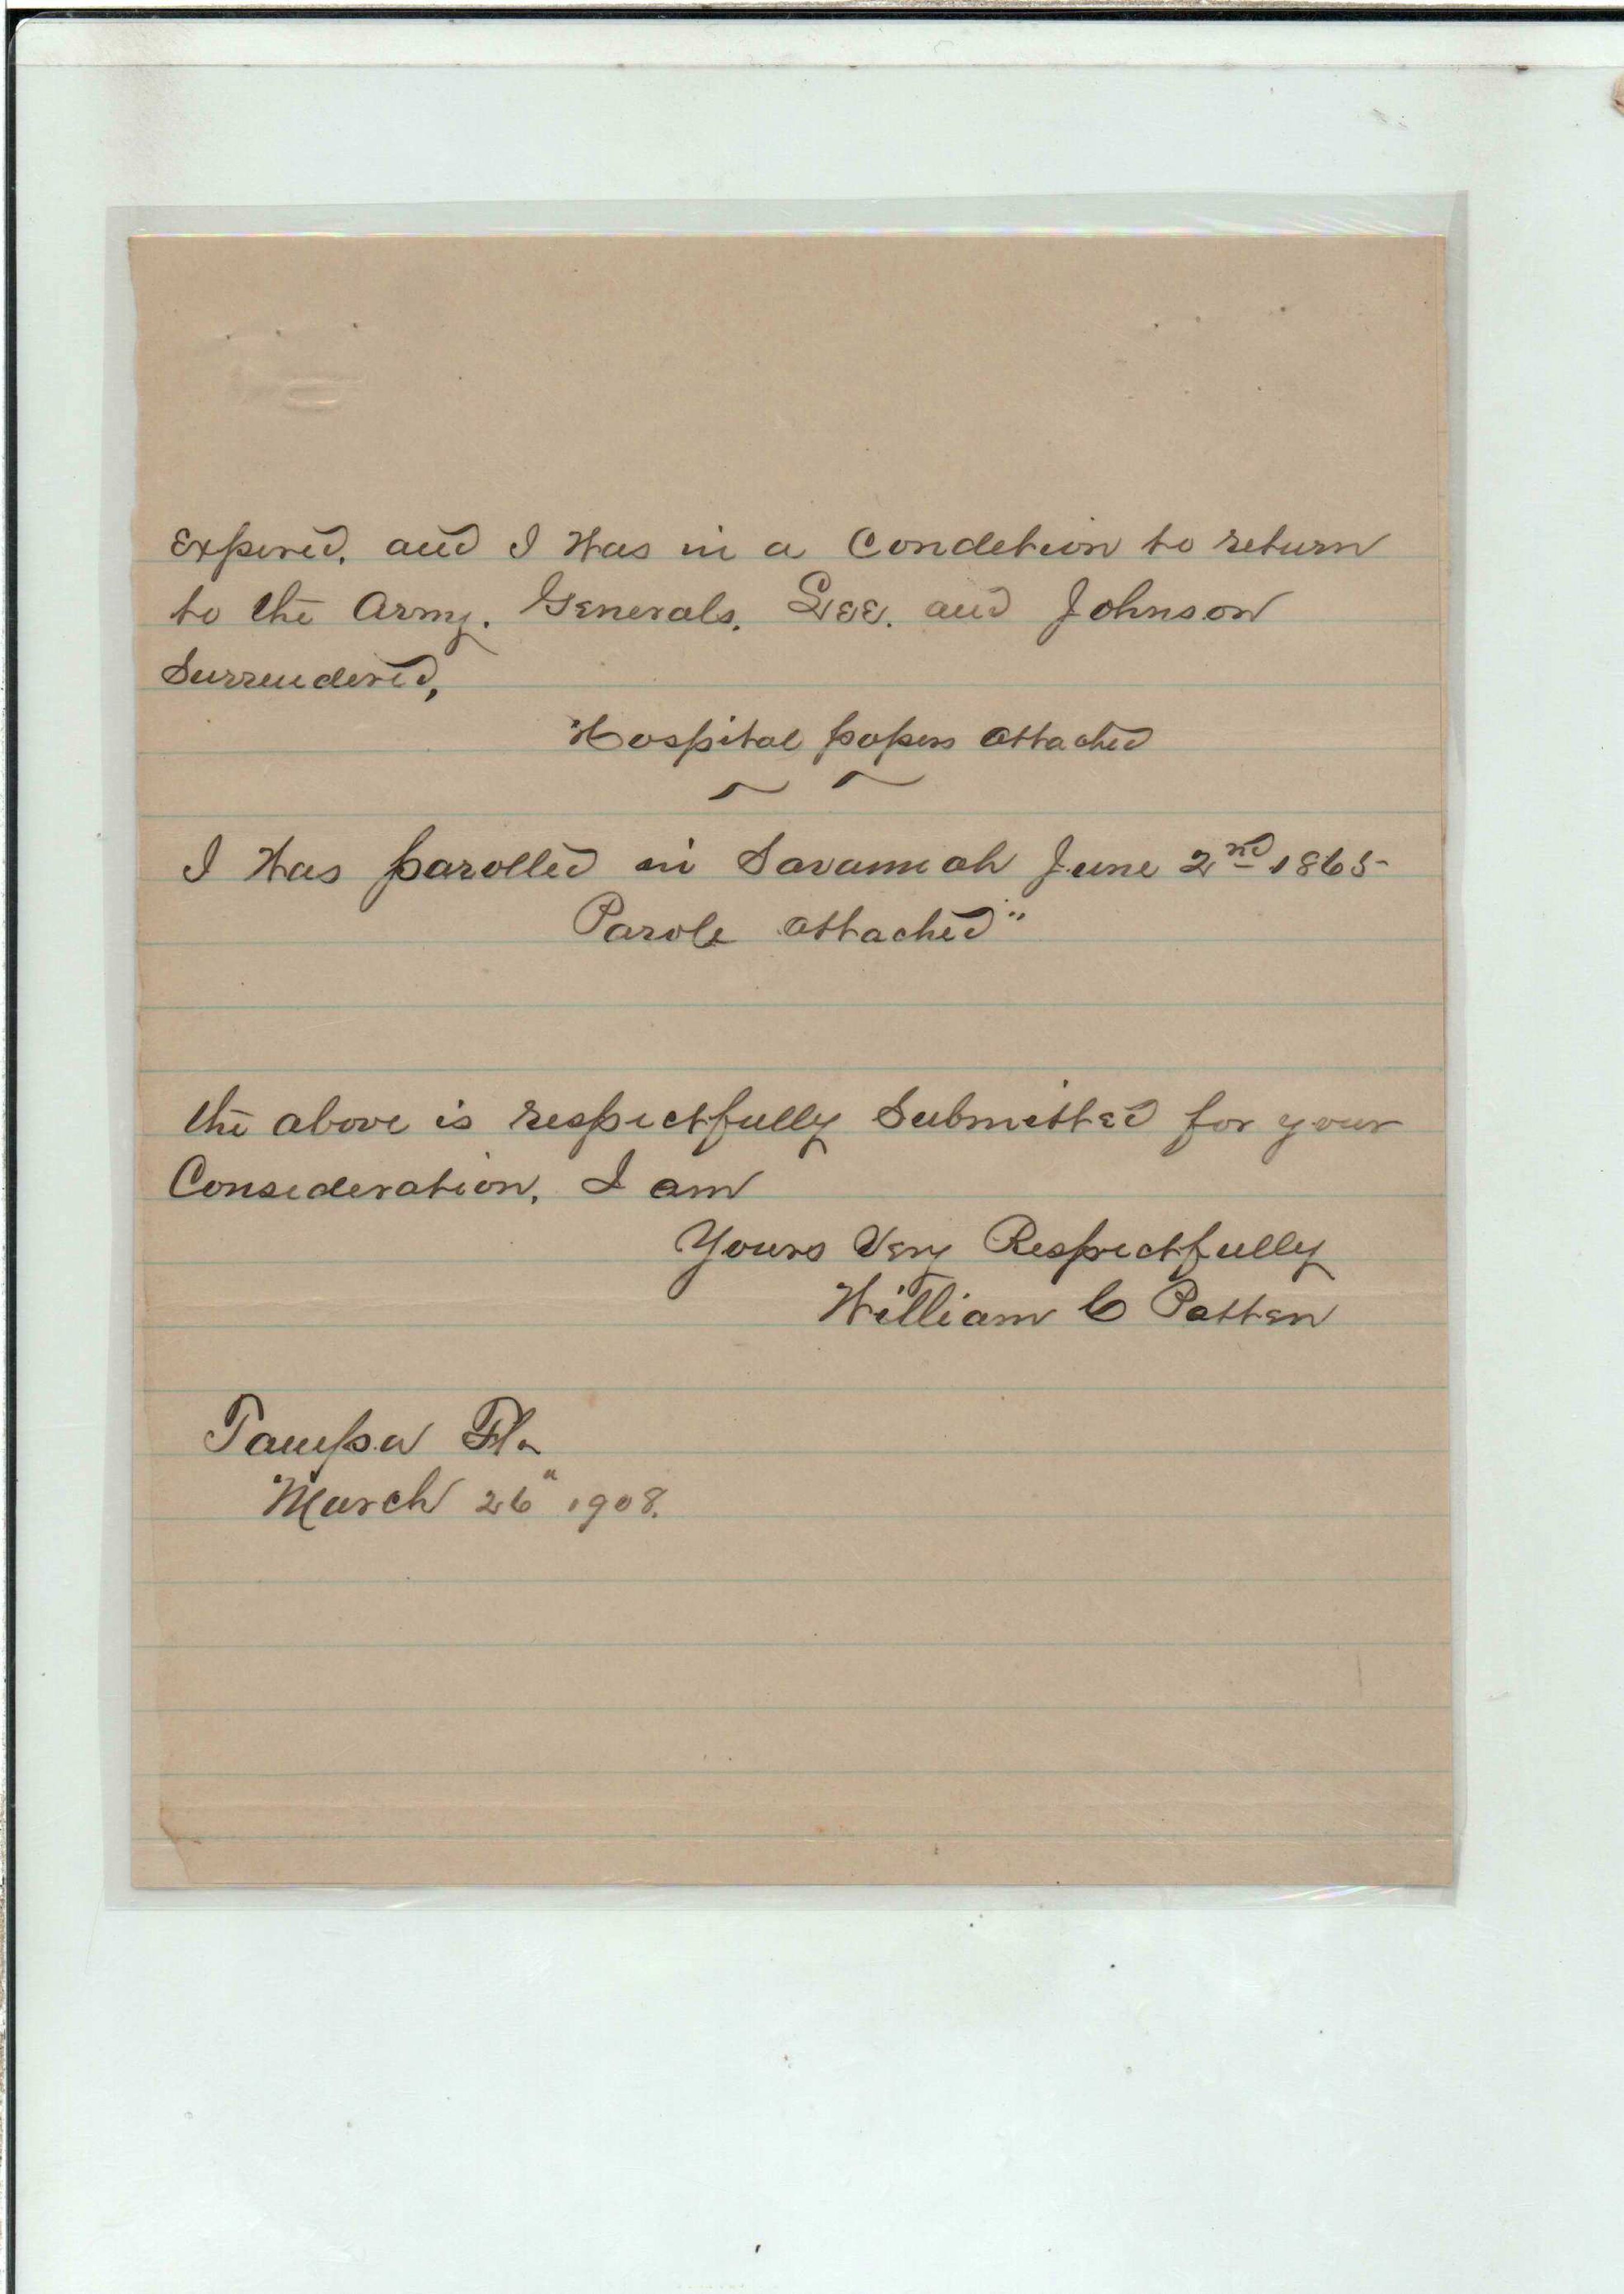 Expired, and I was in a Condition to return
to the Army. Generals, Lee. and Johnson
Surrendered,
Hospital papers attached
I was parolled in Savannah June 2nd 1865
Parole attached"
the above is respectfully Submitted for your
Consideration, I am
Yours Very Respectfully
William C Patten
Tampa Fla
March 26" 1908.